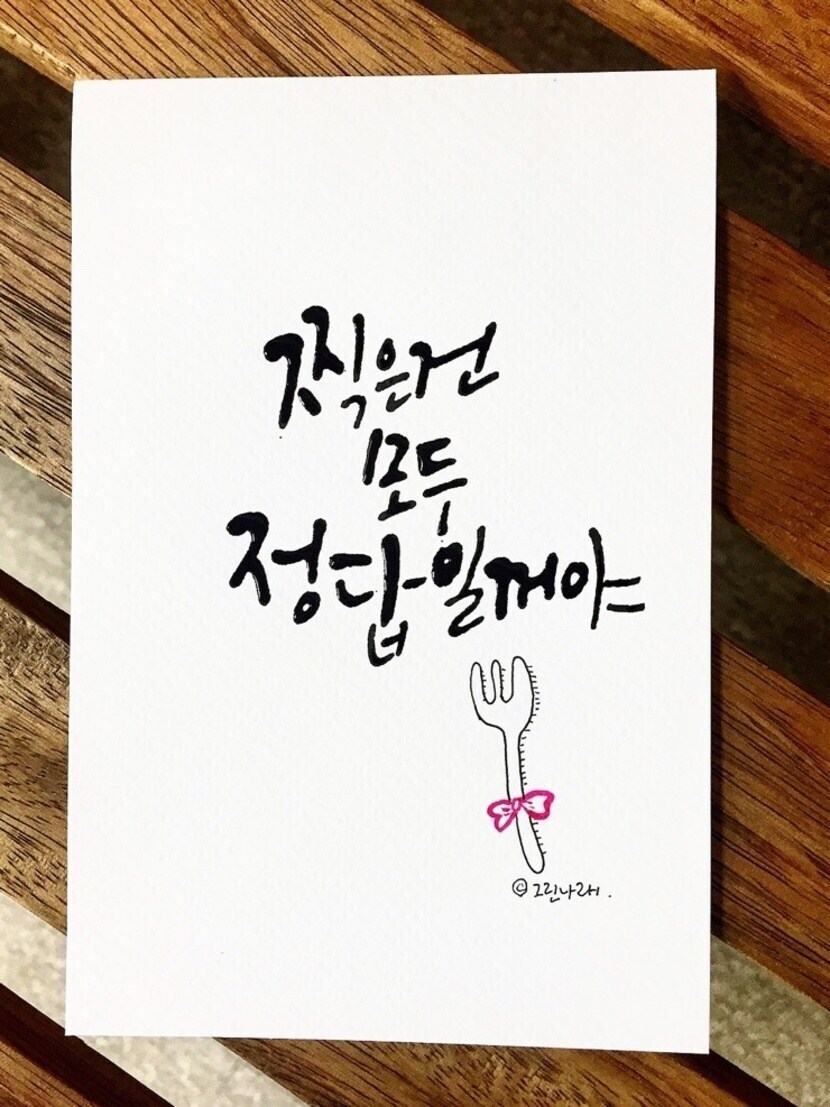 찍은건
모두
정답일꺼야
© 그린나래.